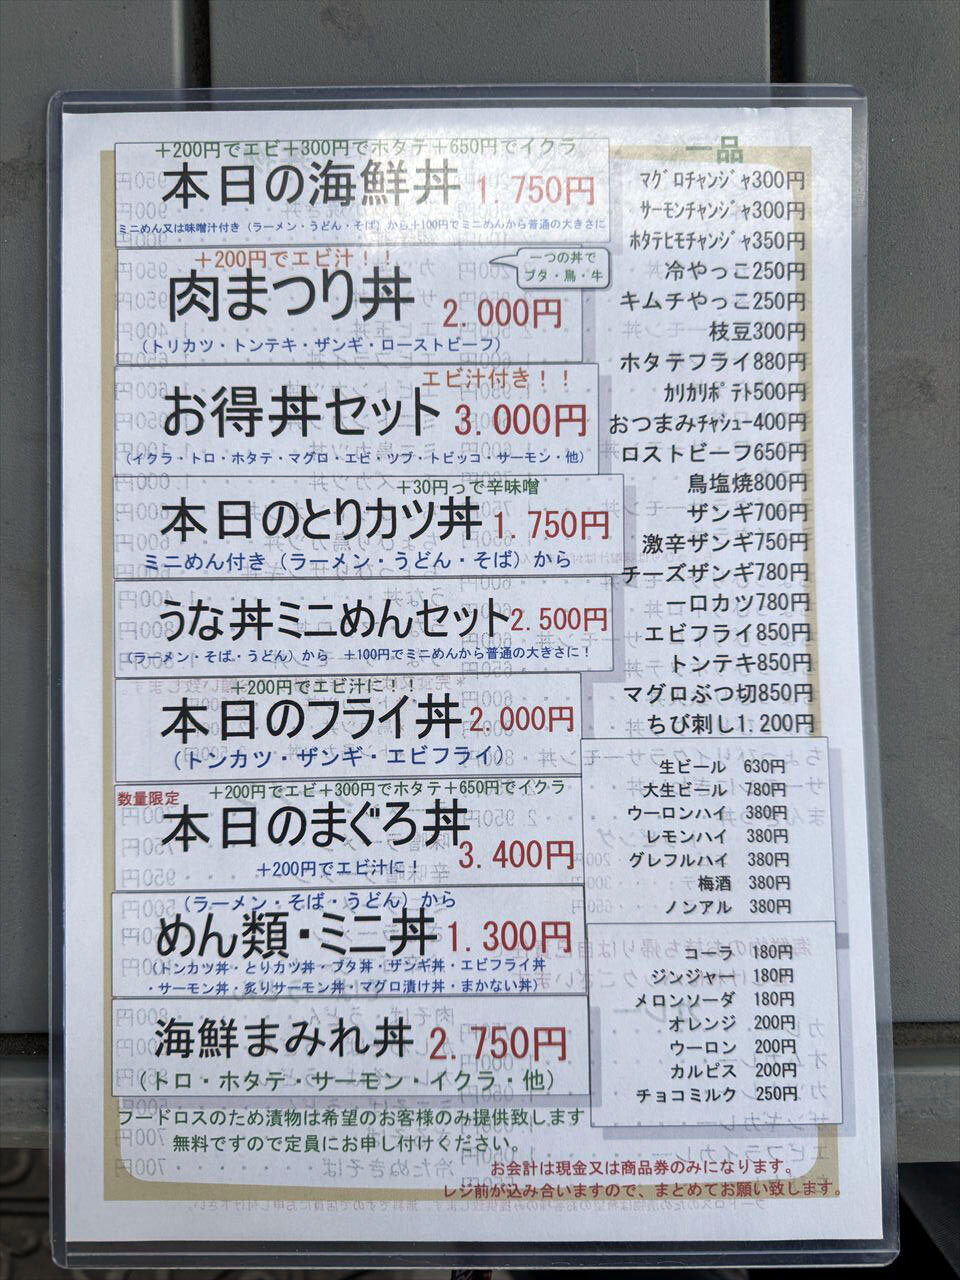 +200円でエビ+300円でホタテ+650円でイクラ
本日の海鮮丼 1.750円
ミニめん又は味噌汁付き（ラーメン・うどん・そば）から+100円でミニめんから普通の大きさに
+200円でエビ汁！！
一つの丼で
ブタ・鳥・牛
肉まつり丼 2.000円
（トリカツ・トンテキ・ザンギ・ローストビーフ）
エビ汁付き！！
お得丼セット 3.000円
（イクラ・トロ・ホタテ・マグロ・エビ・ツブ・トビッコ・サーモン・他）
+30円っで辛味噌
本日のとりカツ丼 1.750円
ミニめん付き（ラーメン・うどん・そば）から
うな丼ミニめんセット 2.500円
（ラーメン・そば・うどん）から +100円でミニめんから普通の大きさに！
+200円でエビ汁に！！
本日のフライ丼 2.000円
（トンカツ・ザンギ・エビフライ）
数量限定
+200円でエビ+300円でホタテ+650円でイクラ
本日のまぐろ丼 3.400円
+200円でエビ汁に！
（ラーメン・そば・うどん）から
めん類・ミニ丼 1.300円
（トンカツ丼・とりカツ丼・ブタ丼・ザンギ丼・エビフライ丼
・サーモン丼・炙りサーモン丼・マグロ漬け丼・まかない丼）
海鮮まみれ丼 2.750円
（トロ・ホタテ・サーモン・イクラ・他）
フードロスのため漬物は希望のお客様のみ提供致します
無料ですので定員にお申し付けください。
一品
マグロチャンジャ300円
サーモンチャンジャ300円
ホタテヒモチャンジャ350円
冷やっこ250円
キムチやっこ250円
枝豆300円
ホタテフライ880円
カリカリポテト500円
おつまみチャシュー400円
ロストビーフ650円
鳥塩焼800円
ザンギ700円
激辛ザンギ750円
チーズザンギ780円
一口カツ780円
エビフライ850円
トンテキ850円
マグロぶつ切850円
ちび刺し1.200円
生ビール 630円
大生ビール 780円
ウーロンハイ 380円
レモンハイ 380円
グレフルハイ 380円
梅酒 380円
ノンアル 380円
コーラ 180円
ジンジャー 180円
メロンソーダ 180円
オレンジ 200円
ウーロン 200円
カルピス 200円
チョコミルク 250円
お会計は現金又は商品券のみになります。
レジ前が込み合いますので、まとめてお願い致します。